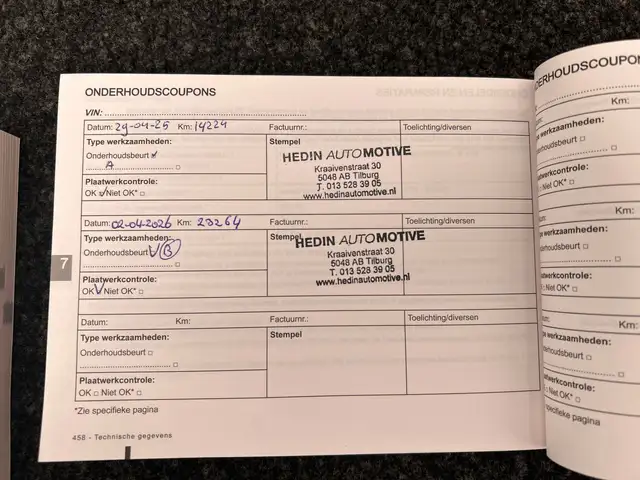 ONDERHOUDSCOUPONS
VIN:
Datum: 29-04-25 Km: 14224 Factuurnr.: Toelichting/diversen
Type werkzaamheden:
Onderhoudsbeurt
A
Plaatwerkcontrole:
OK Niet OK*
Stempel
HEDIN AUTOMOTIVE
Kraaivenstraat 30
5048 AB Tilburg
T. 013 528 39 05
www.hedinautomotive.nl
Datum: 02-04-2026 Km: 23264 Factuurnr.: Toelichting/diversen
Type werkzaamheden:
Onderhoudsbeurt B
Plaatwerkcontrole:
OK Niet OK*
Stempel
HEDIN AUTOMOTIVE
Kraaivenstraat 30
5048 AB Tilburg
T. 013 528 39 05
www.hedinautomotive.nl
7
Datum: Km: Factuurnr.: Toelichting/diversen
Type werkzaamheden:
Onderhoudsbeurt
Plaatwerkcontrole:
OK Niet OK*
Stempel
*Zie specifieke pagina
458 - Technische gegevens
ONDERHOUDSCOUPONS
Km:
Type werkzaamheden:
Onderhoudsbeurt
Plaatwerkcontrole:
OK Niet OK*
Km:
werkzaamheden:
Onderhoudsbeurt
Plaatwerkcontrole:
Niet OK*
Km:
werkzaamheden:
Onderhoudsbeurt
werkcontrole:
Niet OK*
specifieke pagina